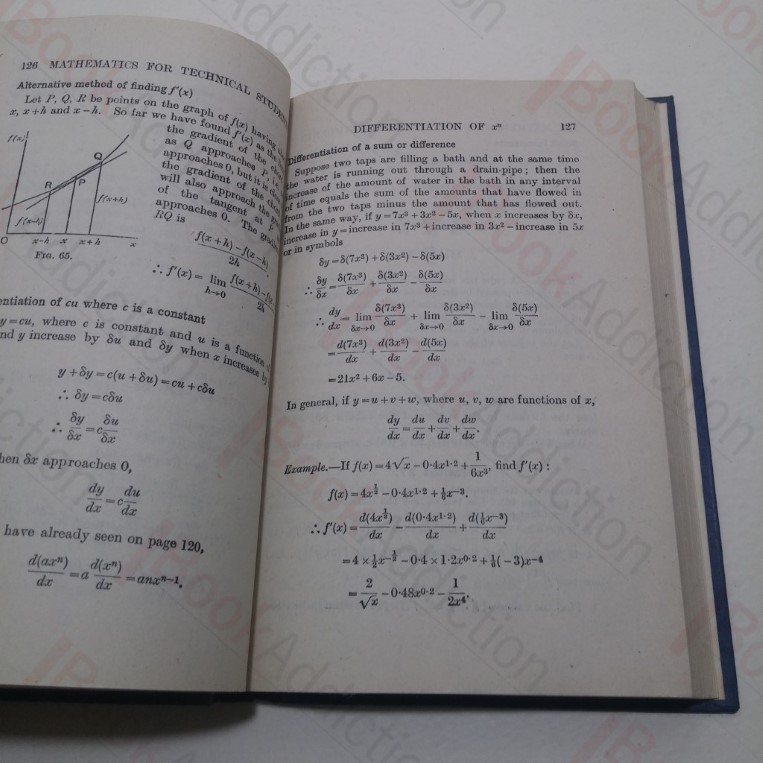 126 MATHEMATICS FOR TECHNICAL STUDEN
Alternative method of finding f′(x)
Let P, Q, R be points on the graph of f(x) having
x, x+h and x−h. So far we have found f′(x) as the
the gradient of the
as Q approaches P, i.e.
approaches 0, but it is
the gradient of the
will also approach the
of the tangent at P
approaches 0. The
RQ is
f(x)
Q
R
P
f(x+h)
f(x−h)
O x−h x x+h x
FIG. 65.
f(x+h)−f(x−h)
2h
∴ f′(x) = lim f(x+h)−f(x
h→0 2h
entiation of cu where c is a constant
y=cu, where c is constant and u is a function
nd y increase by δu and δy when x increases by
y+δy=c(u+δu)=cu+cδu
∴ δy=cδu
∴ δy/δx=c δu/δx
hen δx approaches 0,
dy/dx=c du/dx
have already seen on page 120,
d(axⁿ)/dx=a d(xⁿ)/dx=anxⁿ⁻¹.
DIFFERENTIATION OF xⁿ 127
Differentiation of a sum or difference
Suppose two taps are filling a bath and at the same time
the water is running out through a drain-pipe; then the
increase of the amount of water in the bath in any interval
of time equals the sum of the amounts that have flowed in
from the two taps minus the amount that has flowed out.
In the same way, if y=7x³+3x²−5x, when x increases by δx,
increase in y=increase in 7x³+increase in 3x²−increase in 5x
or in symbols
δy=δ(7x³)+δ(3x²)−δ(5x)
∴ δy/δx=δ(7x³)/δx+δ(3x²)/δx−δ(5x)/δx
∴ dy/dx=lim δ(7x³)/δx + lim δ(3x²)/δx − lim δ(5x)/δx
δx→0 δx→0 δx→0
=d(7x³)/dx+d(3x²)/dx−d(5x)/dx
=21x²+6x−5.
In general, if y=u+v+w, where u, v, w are functions of x,
dy/dx=du/dx+dv/dx+dw/dx.
Example.—If f(x)=4√x−0·4x¹·²+1/6x³, find f′(x) :
f(x)=4x^½−0·4x¹·²+⅙x⁻³.
∴ f′(x)=d(4x^½)/dx−d(0·4x¹·²)/dx+d(⅙x⁻³)/dx
=4×½x^−½−0·4×1·2x⁰·²+⅙(−3)x⁻⁴
=2/√x−0·48x⁰·²−1/2x⁴.
BookAddiction